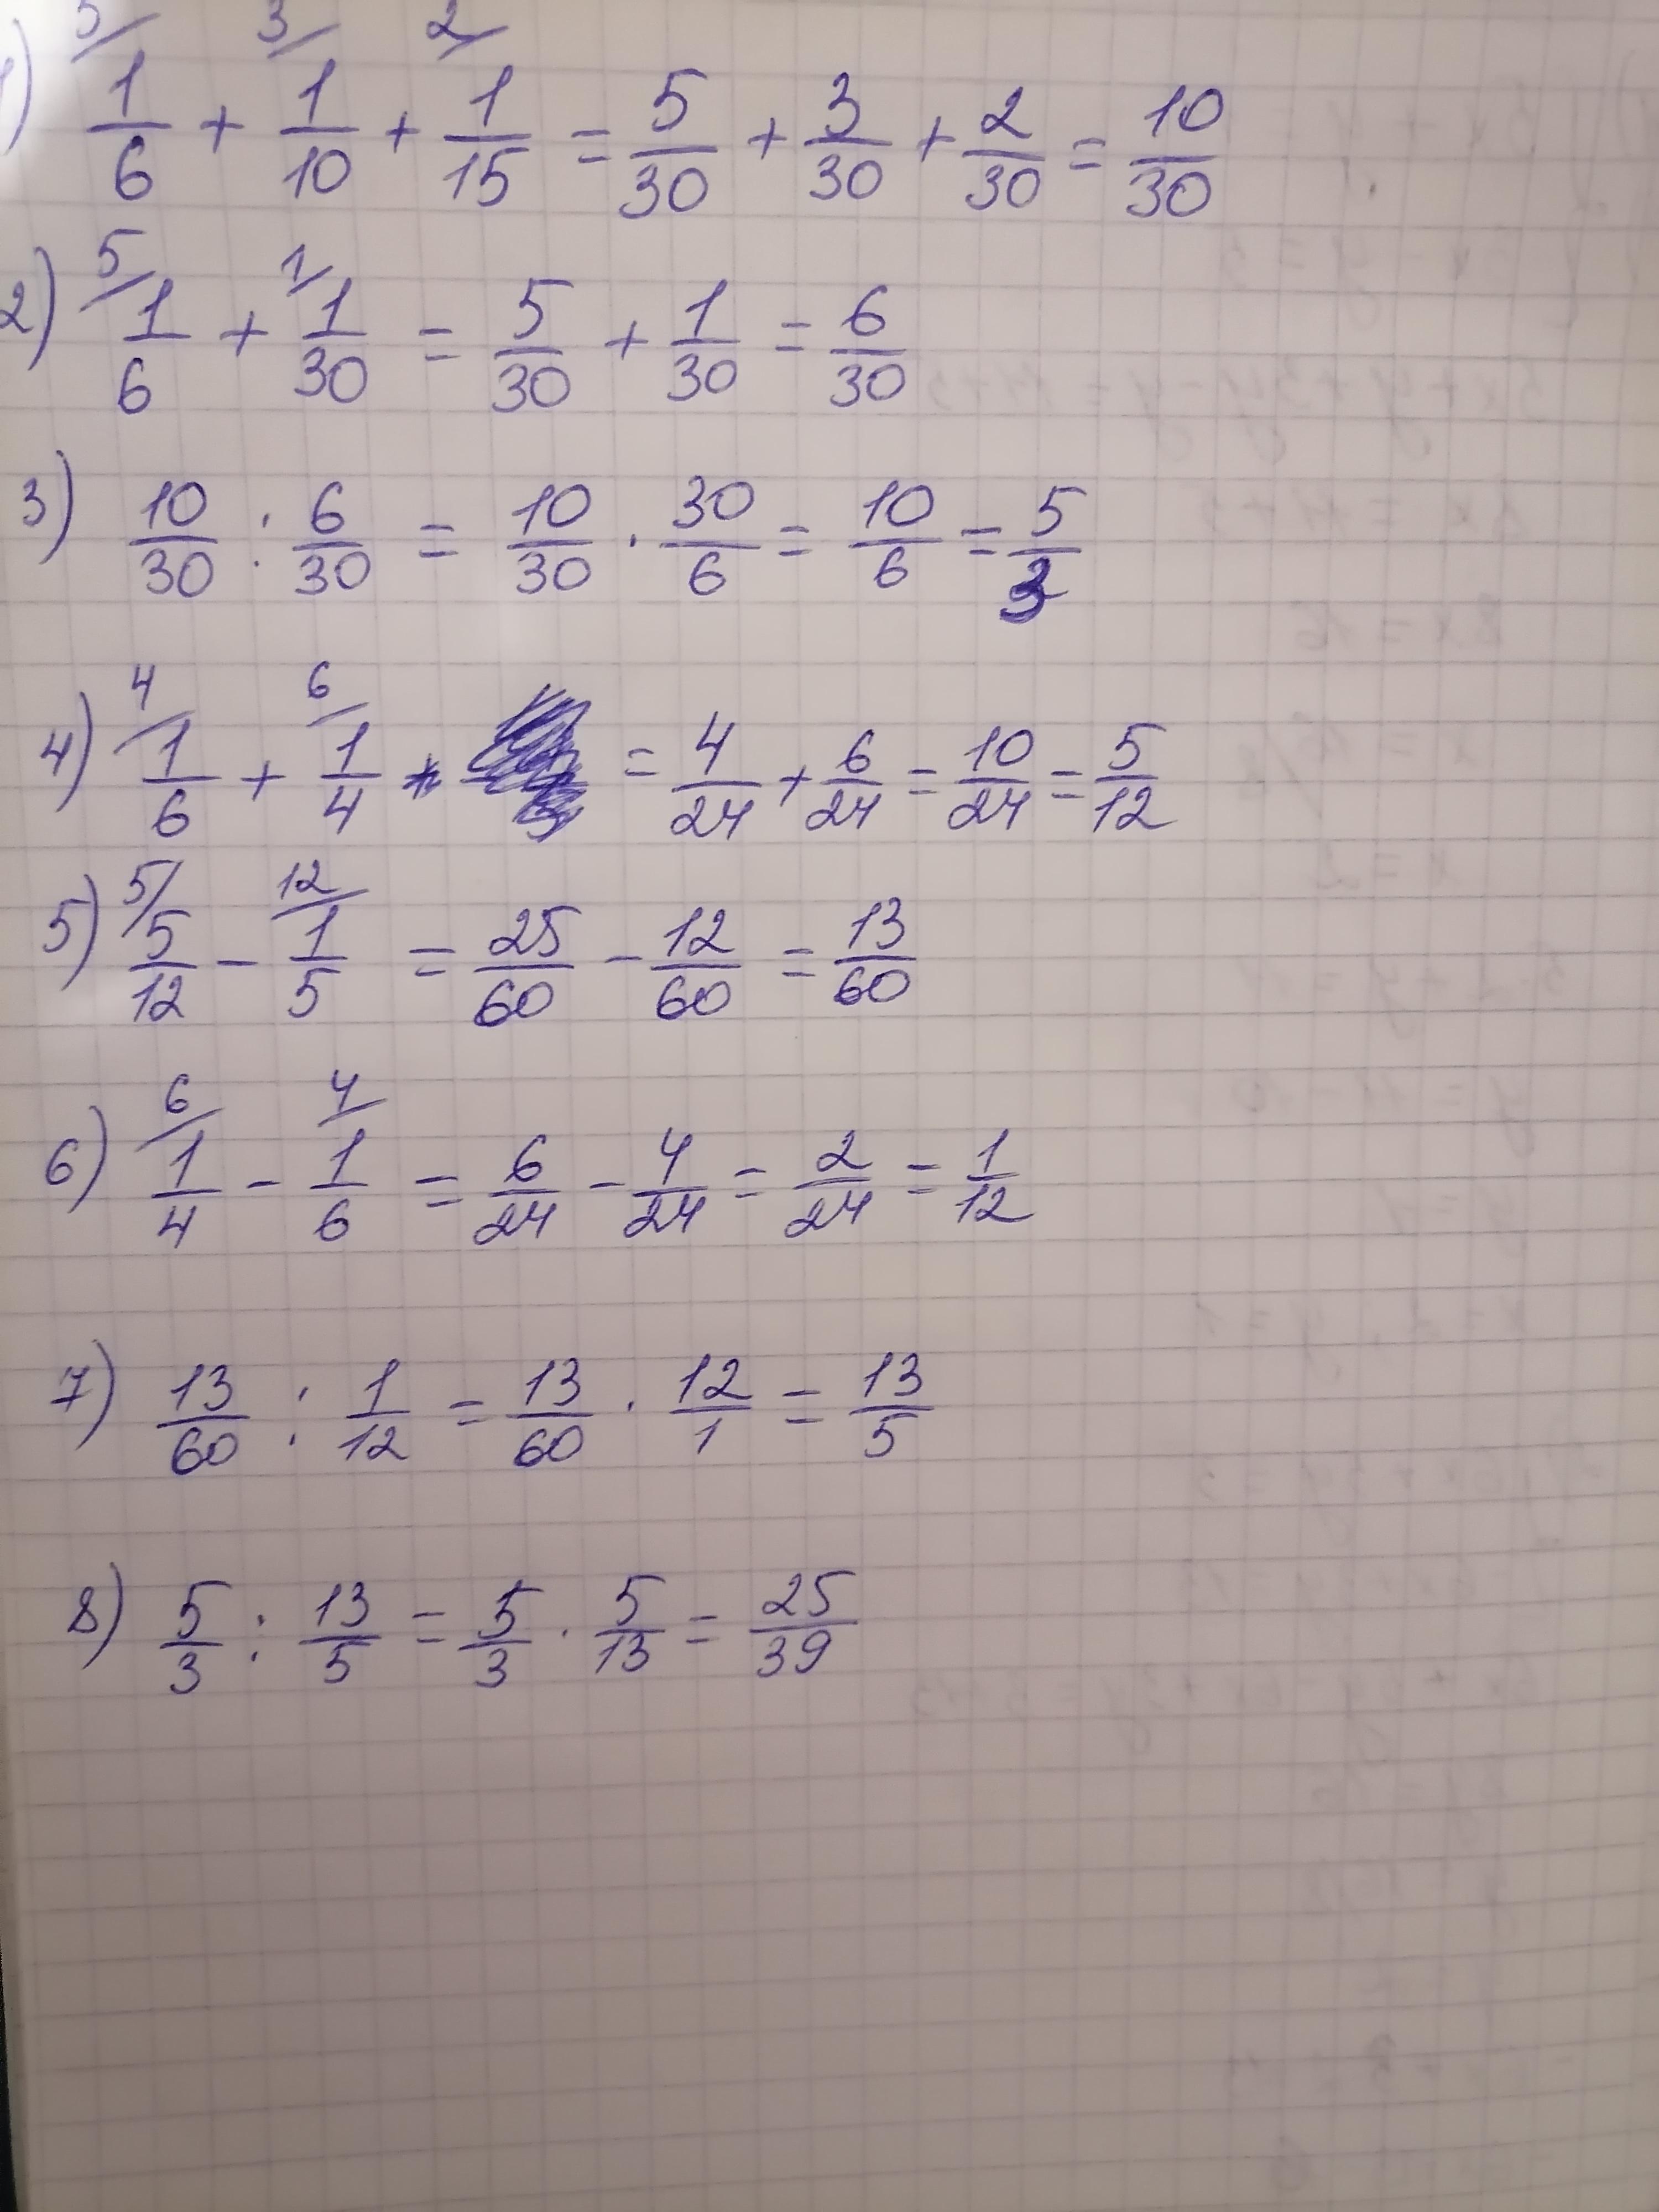 1) 5/ 1/6 + 3/ 1/10 + 2/ 1/15 = 5/30 + 3/30 + 2/30 = 10/30
2) 5/ 1/6 + 1/ 1/30 = 5/30 + 1/30 = 6/30
3) 10/30 : 6/30 = 10/30 · 30/6 = 10/6 = 5/3
4) 4/ 1/6 + 6/ 1/4 + = 4/24 + 6/24 = 10/24 = 5/12
5) 5/ 5/12 - 12/ 1/5 = 25/60 - 12/60 = 13/60
6) 6/ 1/4 - 4/ 1/6 = 6/24 - 4/24 = 2/24 = 1/12
7) 13/60 : 1/12 = 13/60 · 12/1 = 13/5
8) 5/3 : 13/5 = 5/3 · 5/13 = 25/39